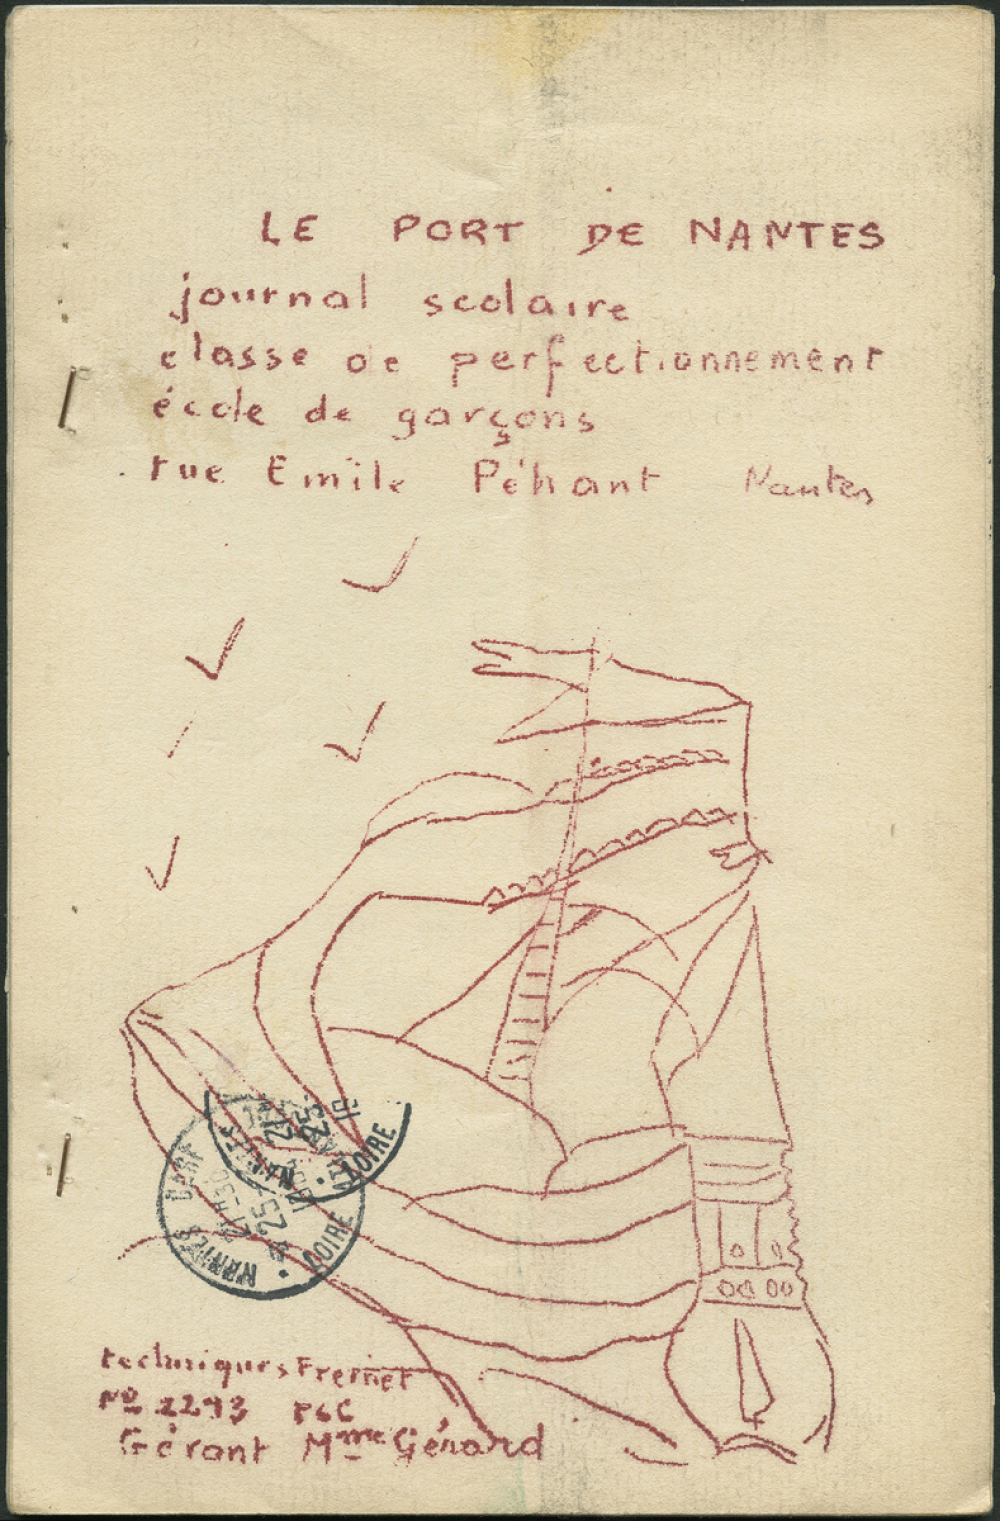 LE PORT DE NANTES
journal scolaire
classe de perfectionnement
école de garçons
rue Emile Péhant Nantes
NANTES
LOIRE
NANTES GARE
LOIRE
techniques Freinet
No 2293 PCC
Gérant Mme Génard